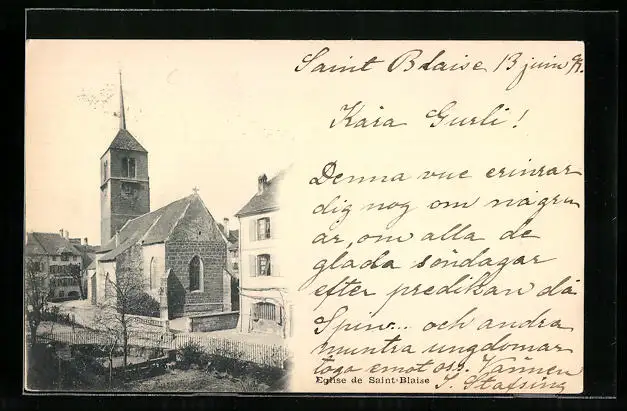 Saint Blaise 13 juin
Kära Gurli!
Denna vue erinrar
dig nog om några
år, om alla de
glada söndagar
efter predikan då
Spin... och andra
muntra ungdomar
toga emot oss. Vännen
Eglise de Saint-Blaise